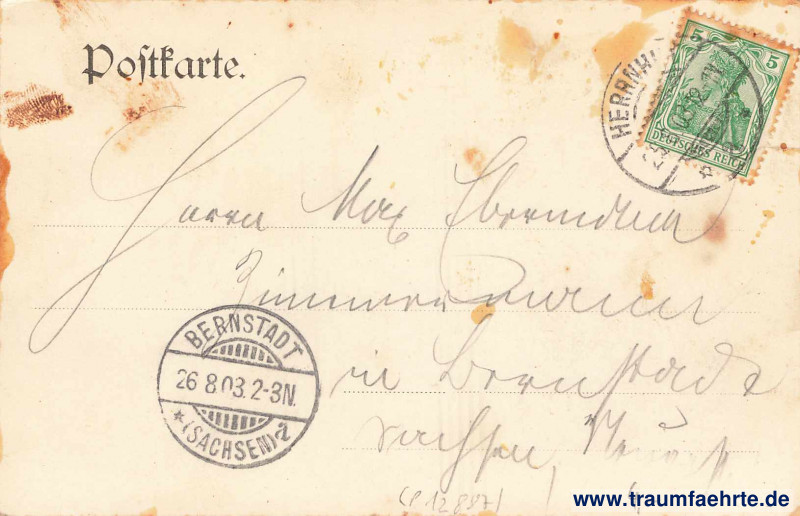 Postkarte.
5 5
DEUTSCHES REICH
HERRNH
Herrn Max
Zimmermann
in Bernstadt
Sachsen,
BERNSTADT
26.8.03.2-3N.
*(SACHSEN)
(P 12887)
www.traumfaehrte.de